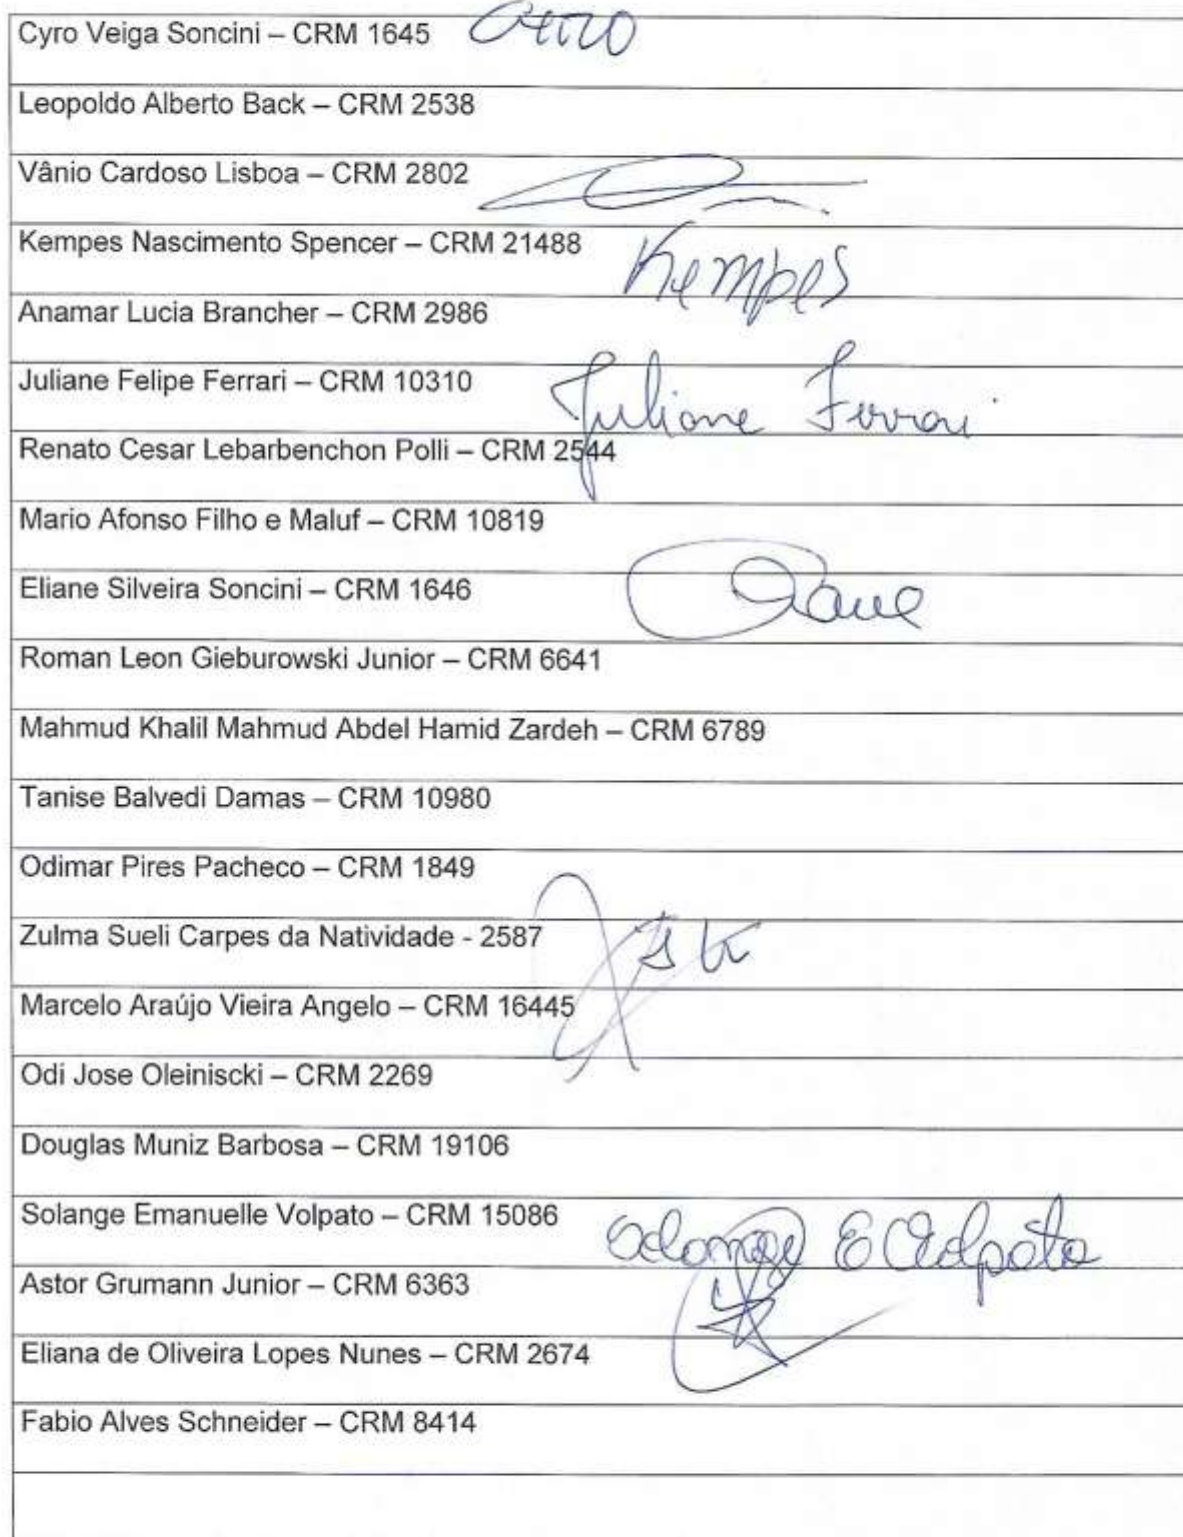 Cyro Veiga Soncini – CRM 1645
Leopoldo Alberto Back – CRM 2538
Vânio Cardoso Lisboa – CRM 2802
Kempes Nascimento Spencer – CRM 21488 Kempes
Anamar Lucia Brancher – CRM 2986
Juliane Felipe Ferrari – CRM 10310 Juliane Ferrari
Renato Cesar Lebarbenchon Polli – CRM 2544
Mario Afonso Filho e Maluf – CRM 10819
Eliane Silveira Soncini – CRM 1646
Roman Leon Gieburowski Junior – CRM 6641
Mahmud Khalil Mahmud Abdel Hamid Zardeh – CRM 6789
Tanise Balvedi Damas – CRM 10980
Odimar Pires Pacheco – CRM 1849
Zulma Sueli Carpes da Natividade - 2587
Marcelo Araújo Vieira Angelo – CRM 16445
Odi Jose Oleiniscki – CRM 2269
Douglas Muniz Barbosa – CRM 19106
Solange Emanuelle Volpato – CRM 15086 Solange E Volpato
Astor Grumann Junior – CRM 6363
Eliana de Oliveira Lopes Nunes – CRM 2674
Fabio Alves Schneider – CRM 8414